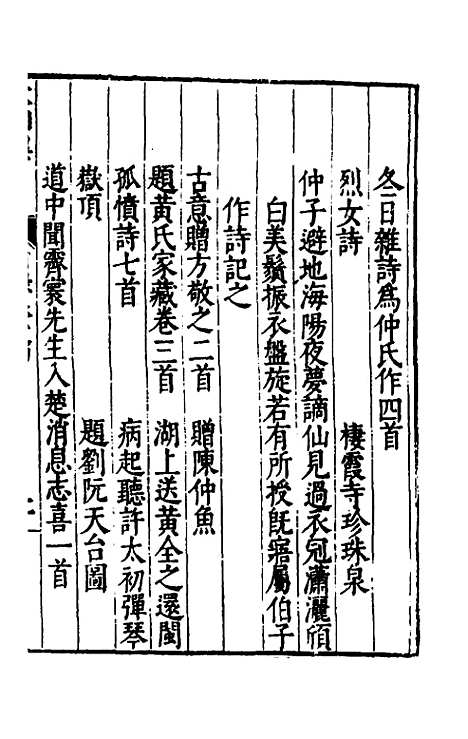 冬日雜詩爲仲氏作四首
烈女詩　棲霞寺珍珠泉
仲子避地海陽夜夢謫仙見過衣冠瀟灑頎
白美鬚振衣盤旋若有所授旣寤屬伯子
作詩記之
古意贈方敬之二首　贈陳仲魚
題黃氏家藏卷三首　湖上送黃全之還閩
孤憤詩七首　病起聽許太初彈琴
嶽頂　題劉阮天台圖
道中聞齊寰先生入楚消息志喜一首